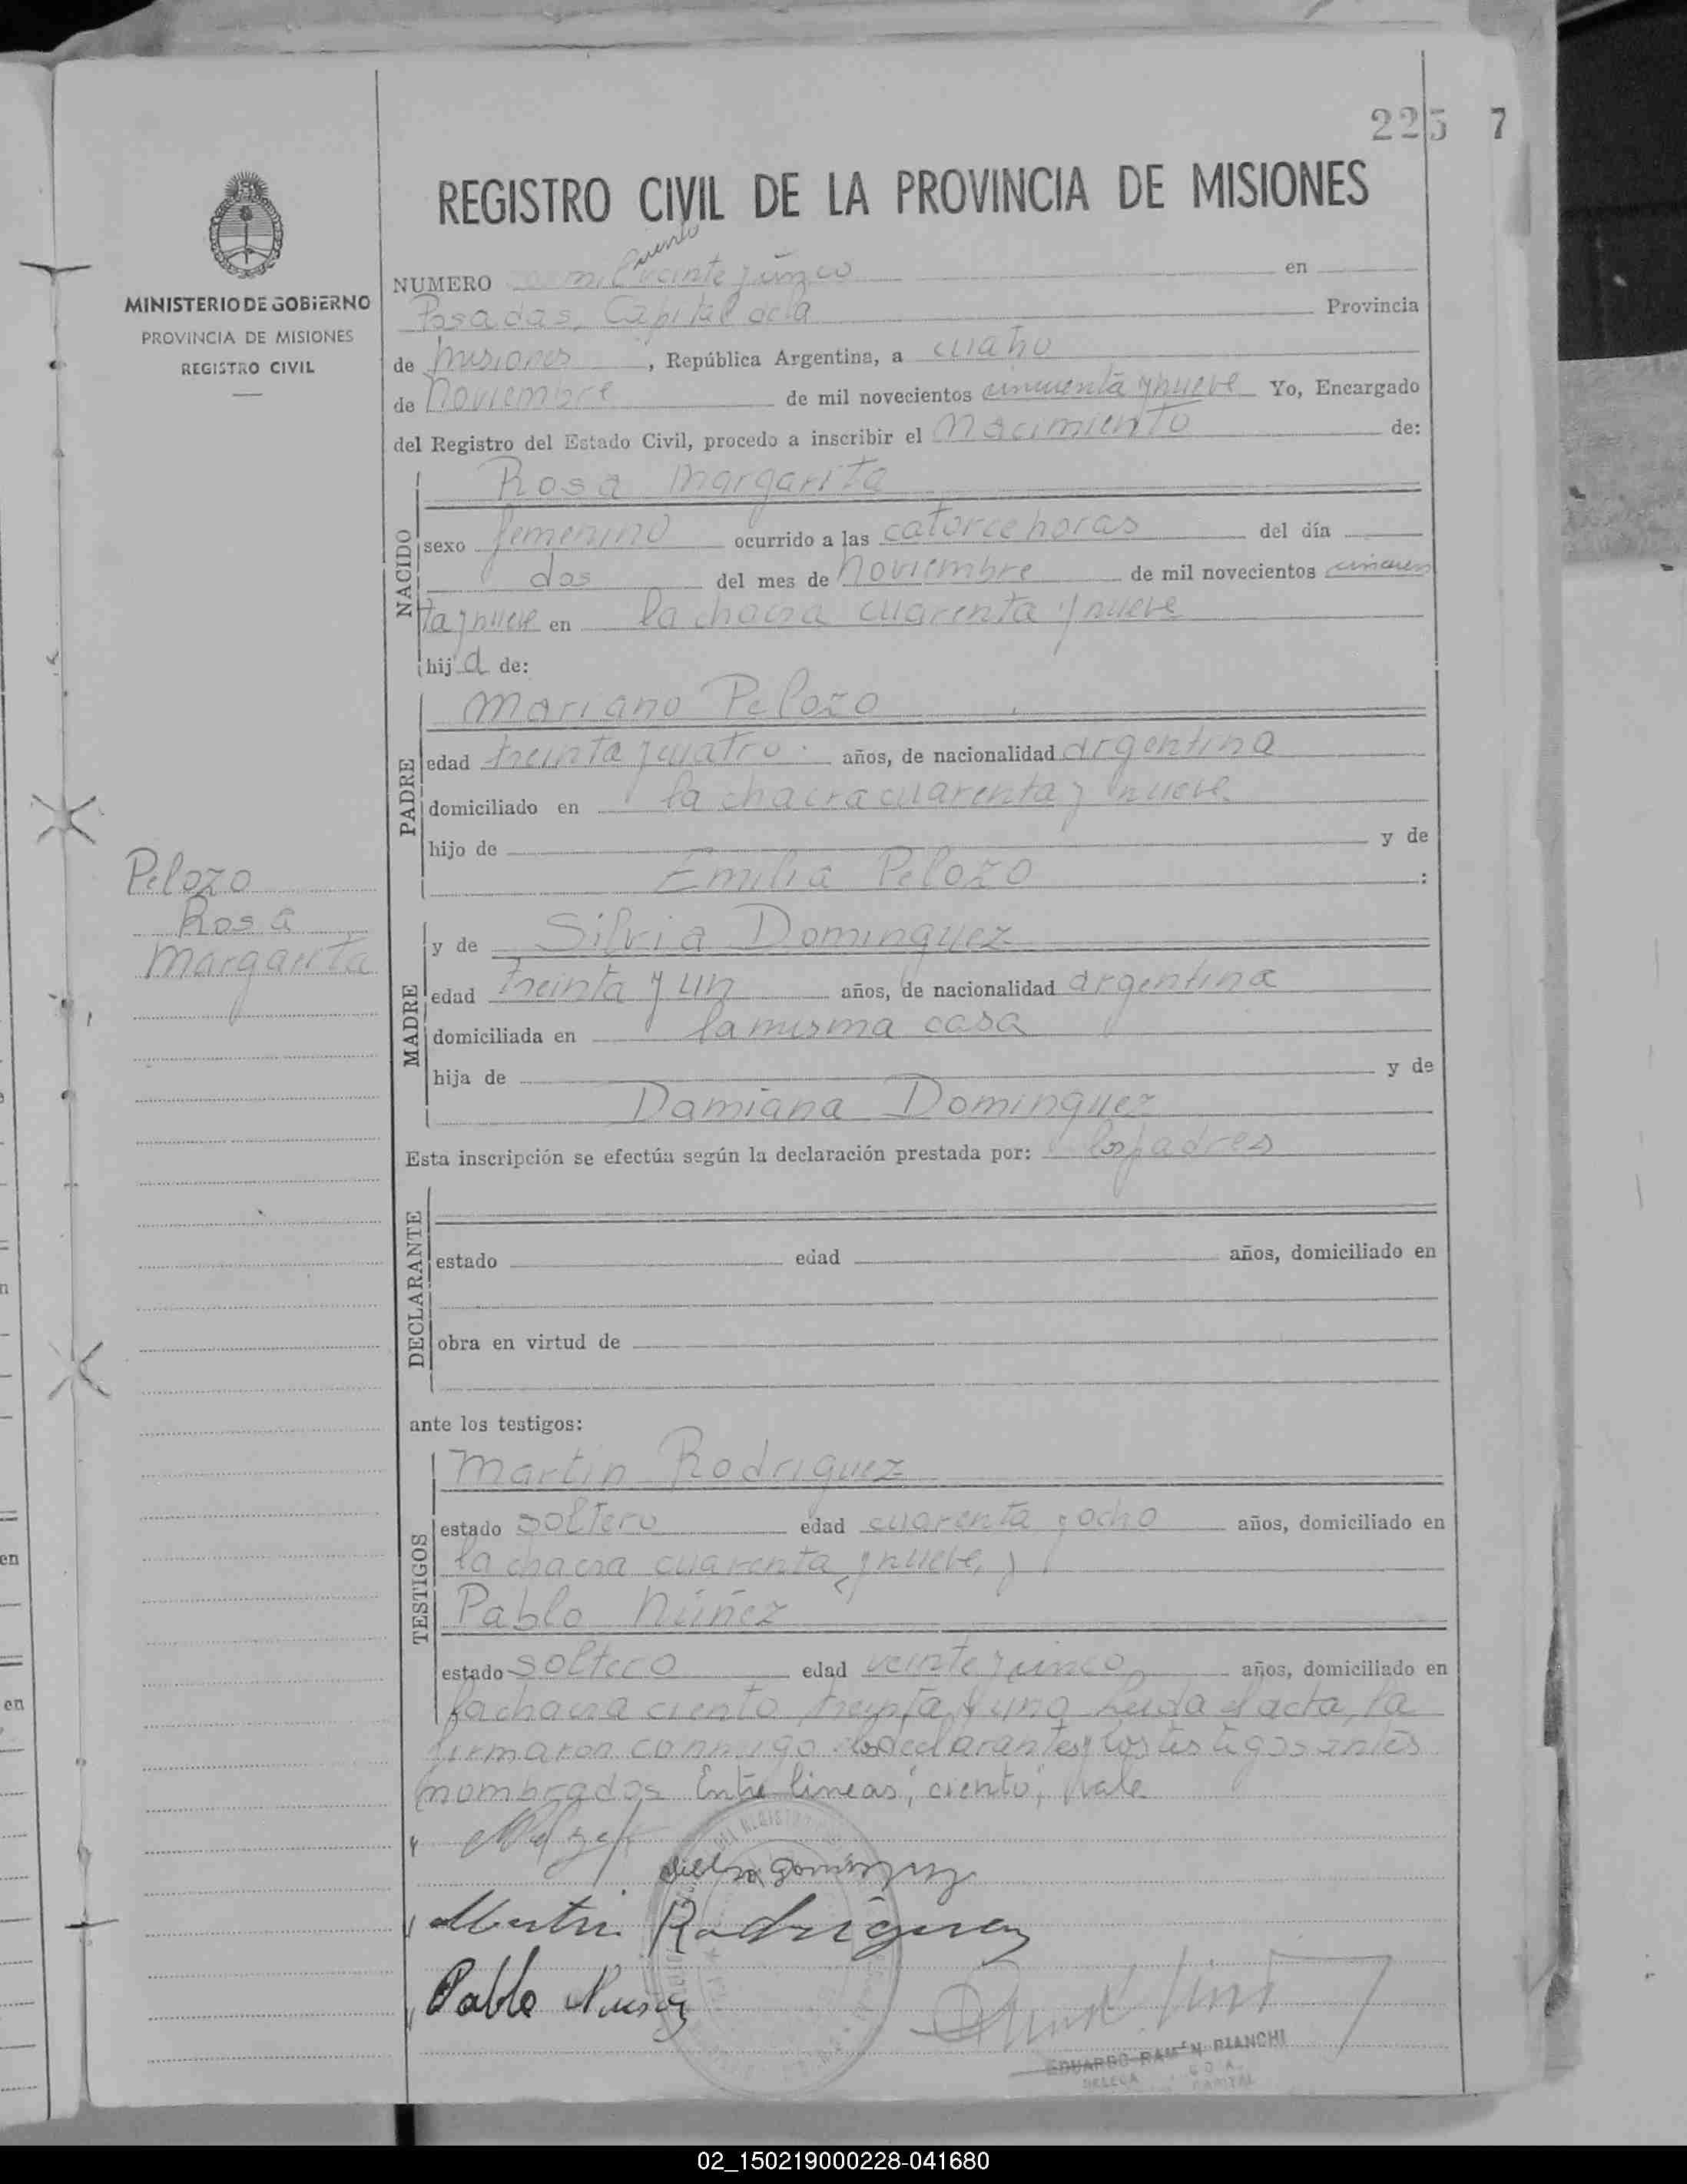 225 7
REGISTRO CIVIL DE LA PROVINCIA DE MISIONES
MINISTERIO DE GOBIERNO
PROVINCIA DE MISIONES
REGISTRO CIVIL
ciento
NUMERO mil veinte y cinco en
Posadas, Capital de la Provincia
de Misiones, República Argentina, a cuatro
de Noviembre de mil novecientos cincuenta y nueve Yo, Encargado
del Registro del Estado Civil, procedo a inscribir el Nacimiento de:
NACIDO
Rosa Margarita
sexo femenino ocurrido a las catorce horas del día
dos del mes de Noviembre de mil novecientos cincuen
ta y nueve en la chacra cuarenta y nueve
hija de:
PADRE
Mariano Pelozo
edad treinta y cuatro años, de nacionalidad argentina
domiciliado en la chacra cuarenta y nueve
hijo de y de
Emilia Pelozo :
Pelozo
Rosa
Margarita
MADRE
y de Silvia Dominguez
edad treinta y un años, de nacionalidad argentina
domiciliada en la misma casa
hija de y de
Damiana Dominguez
Esta inscripción se efectúa según la declaración prestada por: los padres
DECLARANTE
estado edad años, domiciliado en
obra en virtud de
ante los testigos:
TESTIGOS
Martin Rodriguez
estado soltero edad cuarenta y ocho años, domiciliado en
la chacra cuarenta y nueve, y
Pablo Núñez
estado soltero edad veinte y cinco años, domiciliado en
la chacra ciento treinta y uno Leida el acta, la
firmaron conmigo los declarantes y los testigos antes
nombrados Entre lineas, "ciento", vale
Martin Rodriguez
Pablo Nuñez
EDUARDO RAMÓN BIANCHI
CAPITAL
en
en
02_150219000228-041680